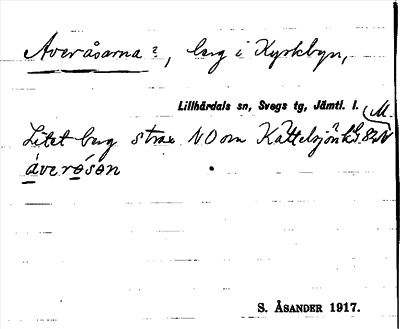 Averåsarna?, berg i Kyrkbyn,
Lillhärdals sn, Svegs tg, Jämtl. l.
Litet berg strax NO om Kattelsjön
áverósǝn
S. ÅSANDER 1917.